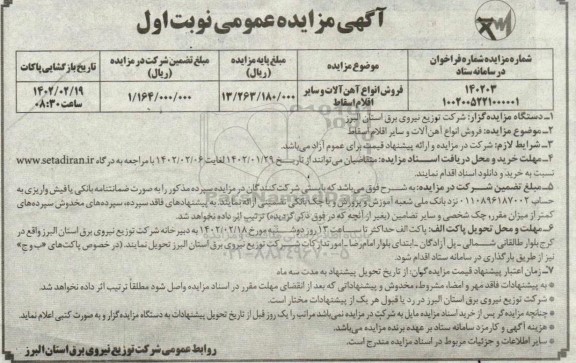 آگهی مزایده عمومی نوبت اول
شماره مزایده شماره فراخوان در سامانه ستاد
موضوع مزایده
مبلغ پایه مزایده (ریال)
مبلغ تضمین شرکت در مزایده (ریال)
تاریخ بازگشایی پاکات
۱۴۰۲۰۳
۱۰۰۲۰۰۵۲۲۱۰۰۰۰۰۱
فروش انواع آهن آلات و سایر اقلام اسقاط
۱۳/۲۶۳/۱۸۰/۰۰۰
۱/۱۶۴/۰۰۰/۰۰۰
۱۴۰۲/۰۲/۱۹
ساعت ۰۸:۳۰
۱- دستگاه مزایده گزار: شرکت توزیع نیروی برق استان البرز
۲- موضوع مزایده: فروش انواع آهن آلات و سایر اقلام اسقاط
۳- شرایط لازم: شرکت در مزایده و ارائه پیشنهاد قیمت برای عموم آزاد می‌باشد.
۴- مهلت خرید و محل دریافت اسناد مزایده: متقاضیان می‌توانند از تاریخ ۱۴۰۲/۰۱/۲۹ لغایت ۱۴۰۲/۰۲/۰۶ با مراجعه به درگاه www.setadiran.ir
نسبت به خرید و دانلود اسناد اقدام نمایند.
۵- مبلغ تضمین شرکت در مزایده: به شرح فوق می‌باشد که بایستی شرکت کنندگان در مزایده سپرده مذکور را به صورت ضمانتنامه بانکی یا فیش واریزی به
حساب ۰۱۱۰۸۹۶۱۸۷۰۰۲ نزد بانک ملی شعبه آموزش و پرورش یا چک بانکی تضمینی ارائه نمایند. به پیشنهادهای فاقد سپرده، سپرده‌های مخدوش سپرده‌های
کمتر از میزان مقرر، چک شخصی و سایر تضامین (بغیر از آنچه که در فوق ذکر گردیده) ترتیب اثر داده نخواهد شد.
۶- مهلت و محل تحویل پاکت الف: پاکت الف حداکثر تا ساعت ۱۳ روز دوشنبه مورخ ۱۴۰۲/۰۲/۱۸ به دبیرخانه شرکت توزیع نیروی برق استان البرز واقع در
کرج بلوار طالقانی شمالی - پل آزادگان - ابتدای بلوار امام رضا - امور تدارکات شرکت توزیع نیروی برق استان البرز تحویل نمایند. (در خصوص پاکت‌های «ب و ج»
نیز از طریق بارگذاری در سامانه ستاد اقدام شود.
۷- زمان اعتبار پیشنهاد قیمت مزایده گران: از تاریخ تحویل پیشنهاد به مدت سه ماه
* به پیشنهادات فاقد مهر و امضاء، مشروط، مخدوش و پیشنهاداتی که بعد از انقضای مهلت مقرر در اسناد مزایده واصل شود مطلقاً ترتیب اثر داده نخواهد شد.
* شرکت توزیع نیروی برق استان البرز در رد یا قبول هر یک از پیشنهادات مختار است.
* چنانچه مزایده گر پس از خرید اسناد مزایده مایل به شرکت در مزایده نمی‌باشد مراتب را یک روز قبل از تاریخ تحویل پیشنهادات به دستگاه مزایده گزار و به صورت کتبی اعلام نماید.
* هزینه آگهی و کارمزد سامانه ستاد بر عهده برنده مزایده می‌باشد.
* سایر اطلاعات و جزئیات مربوط در اسناد مزایده مندرج است.
روابط عمومی شرکت توزیع نیروی برق استان البرز